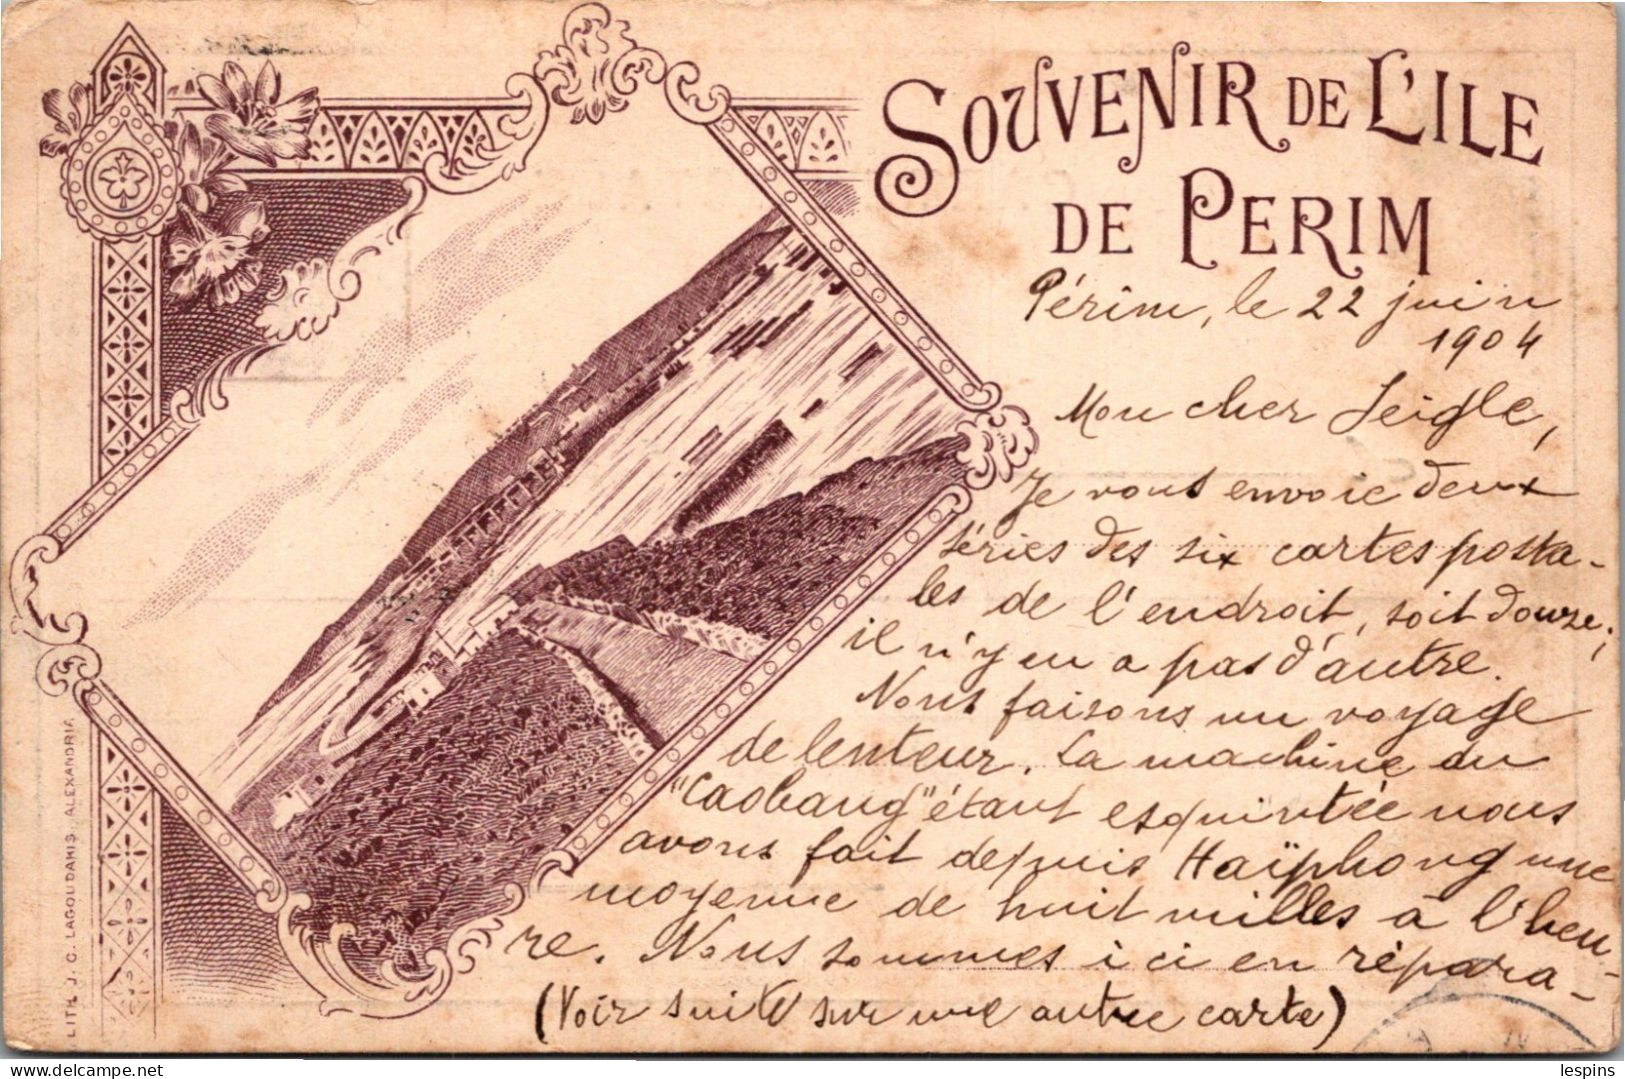 SOUVENIR DE L'ILE
DE PERIM
Périm, le 22 juin
1904
Mon cher Seigle,
Je vous envoie deux
séries des six cartes posta-
les de l'endroit, soit douze;
il n'y en a pas d'autre.
Nous faisons un voyage
de lenteur. La machine du
"Caobang" étant esquintée nous
avons fait depuis Haïphong une
moyenne de huit milles à l'heu-
re. Nous sommes ici en répara-
(Voir suite sur une autre carte)
LITH. J. C. LAGOUDAKIS, ALEXANDRIE
lespins